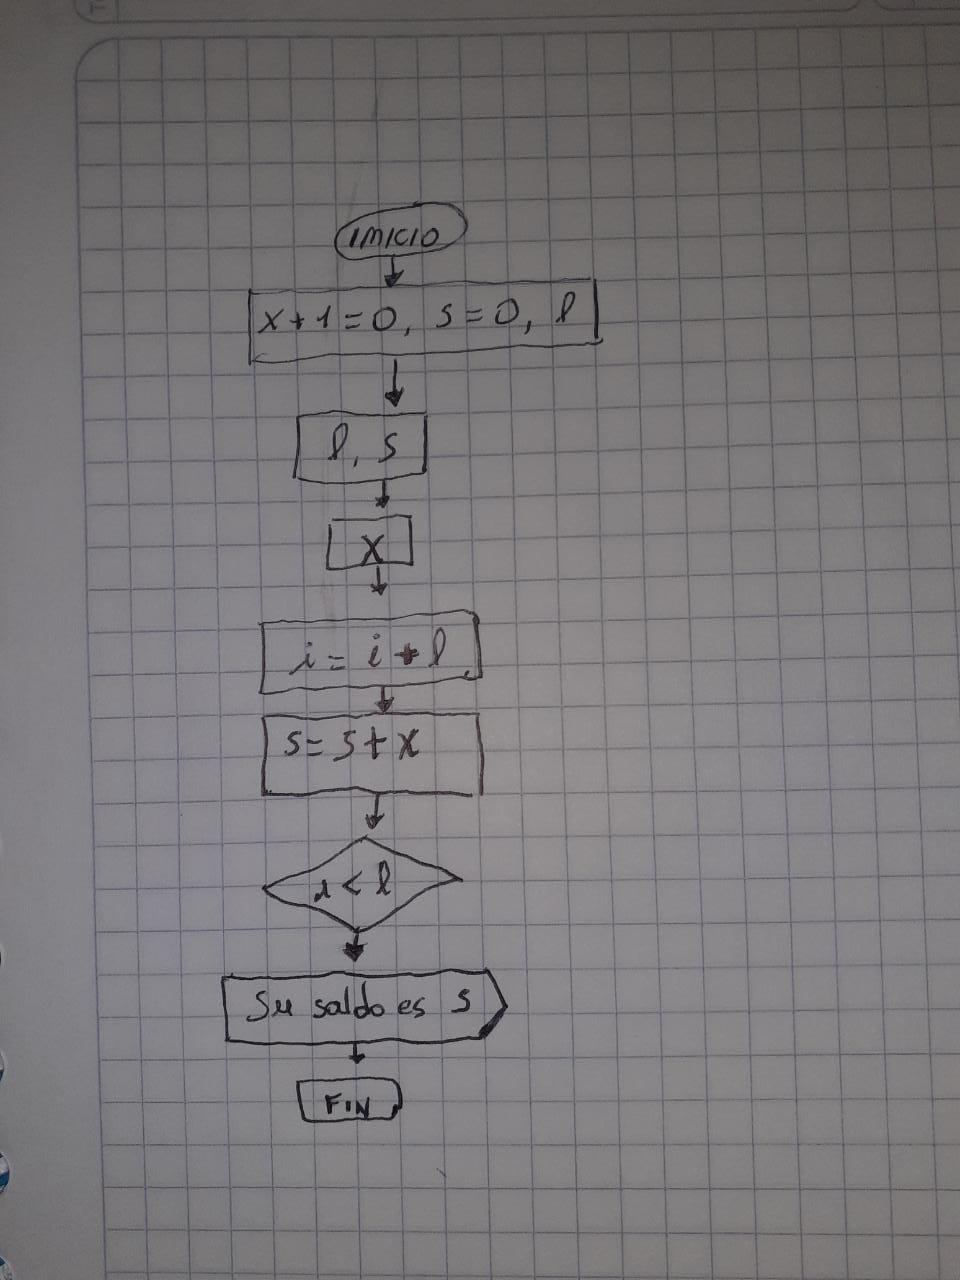 INICIO
x+1=0, s=0, l
l, s
X
i = i + l
s= s+x
i < l
Su saldo es s
FIN